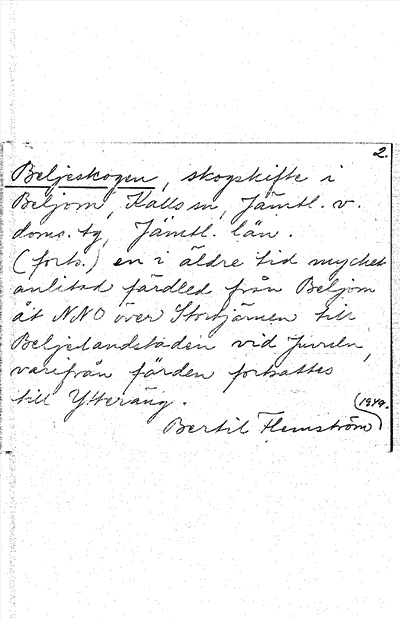 2.
Beljeskogen, skogskifte i
Beljom, Kalls sn, Jämtl. v.
doms. tg, Jämtl. län.
(forts.) en i äldre tid mycket
anlitad färdled från Beljom
åt NNO över Stortjärnen till
Beljelandstaden vid Juveln,
varifrån färden fortsattes
till Ytteräng.
(1949.
Bertil Flemström